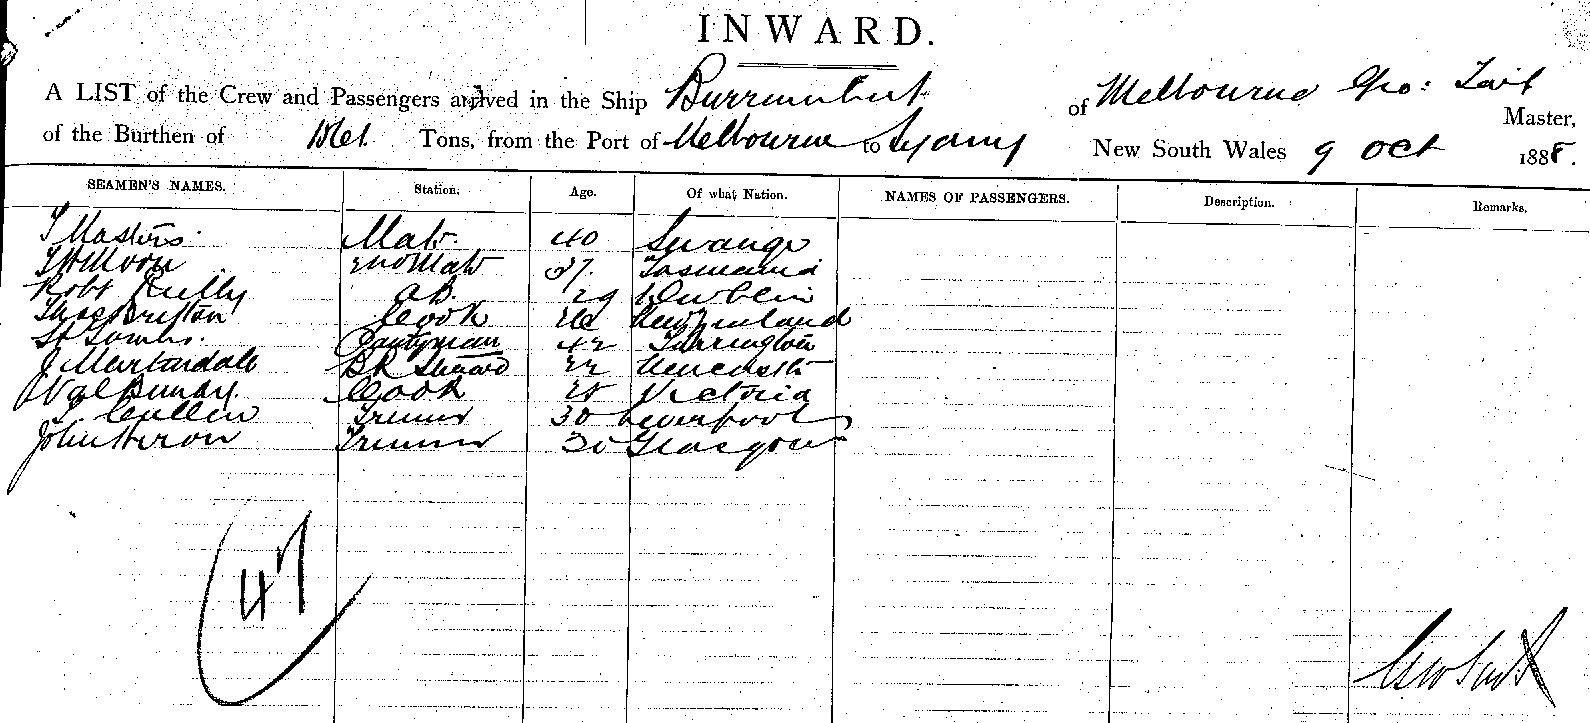 INWARD.
A LIST of the Crew and Passengers arrived in the Ship Burrumbeet of Melbourne Geo: Tait Master,
of the Burthen of Tons, from the Port of Melbourne to Sydney New South Wales 9 Oct 1888.
SEAMEN'S NAMES. Station. Age. Of what Nation. NAMES OF PASSENGERS. Description. Remarks.
Masters Mate. 40 Swange
Moon 2nd Mate 37. Tasmania
Robt Kelly AB. 29 Dublin
Thos Britton Cook 26 Newfinland
Pantryman 42 Torrington
J Martindale BR Steward 22 Newcastle
Bundy. Cook 28 Victoria
Cullen Trimmer 30 Liverpool
John Heron Trimmer 30 Glasgow
47